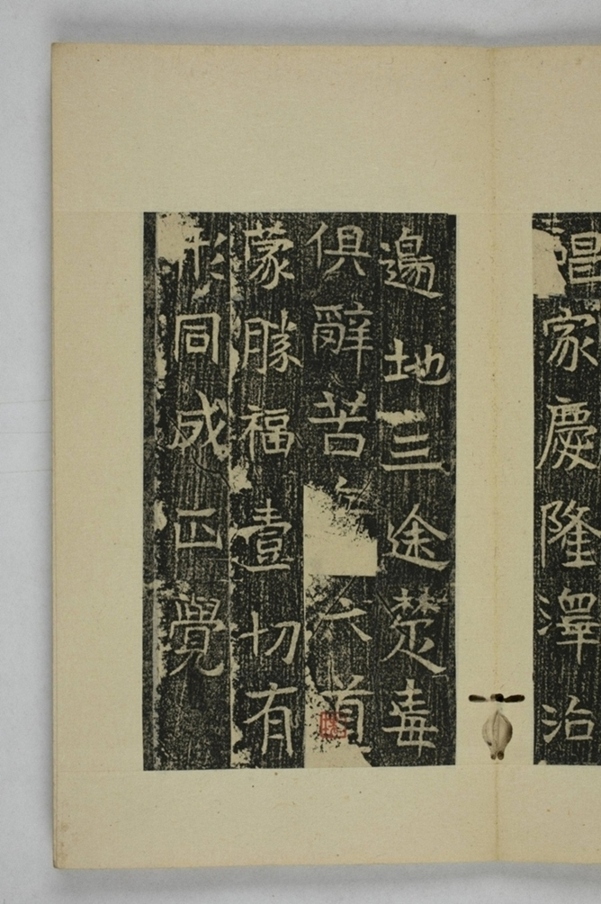 家慶隆澤洽
邊地三途楚毒
俱辭苦六道
蒙勝福壹切有
形同成正覺